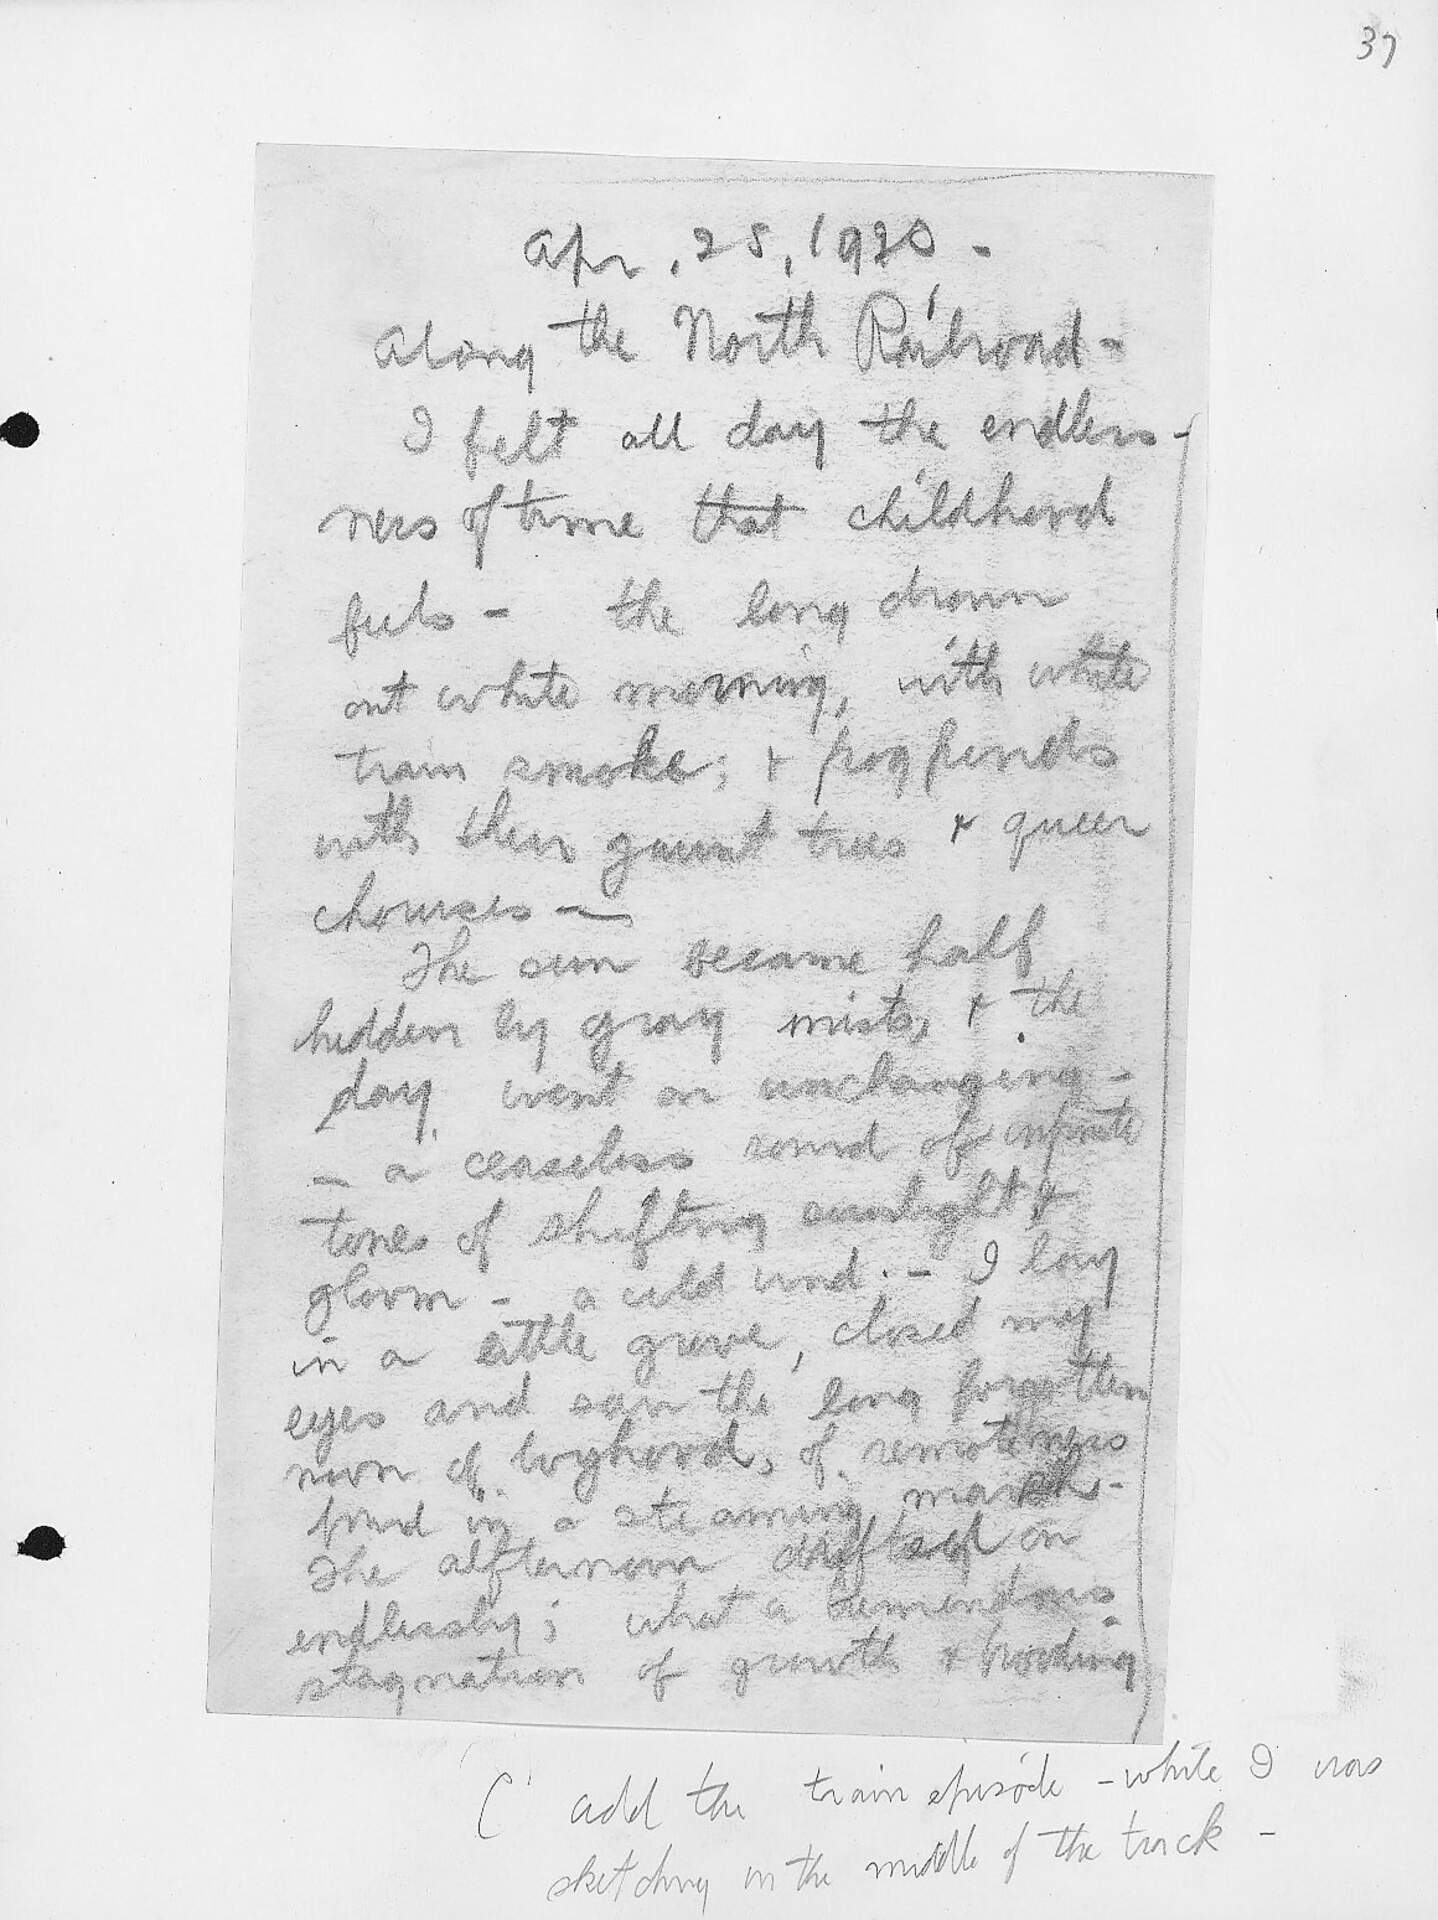 37
Apr. 25, 1920 -
Along the North Railroad -
I felt all day the endless-
ness of time that childhood
feels - the long drawn
out white morning, with white
train smoke; + frog ponds
with their gaunt trees + queer
chourses -
The sun became half
hidden by gray mists, + the
day went on unchanging -
- a ceaseless round of infinite
tones of shifting sunlight +
gloom - a cold wind. - I lay
in a little grove, closed my
eyes and saw the long forgotten
noon of boyhood, of remoteness
found in a steaming marsh -
The afternoon drifted on
endlessly; what a tremendous
stagnation of growth + brooding
( add the train episode - while I was
sketching in the middle of the track -